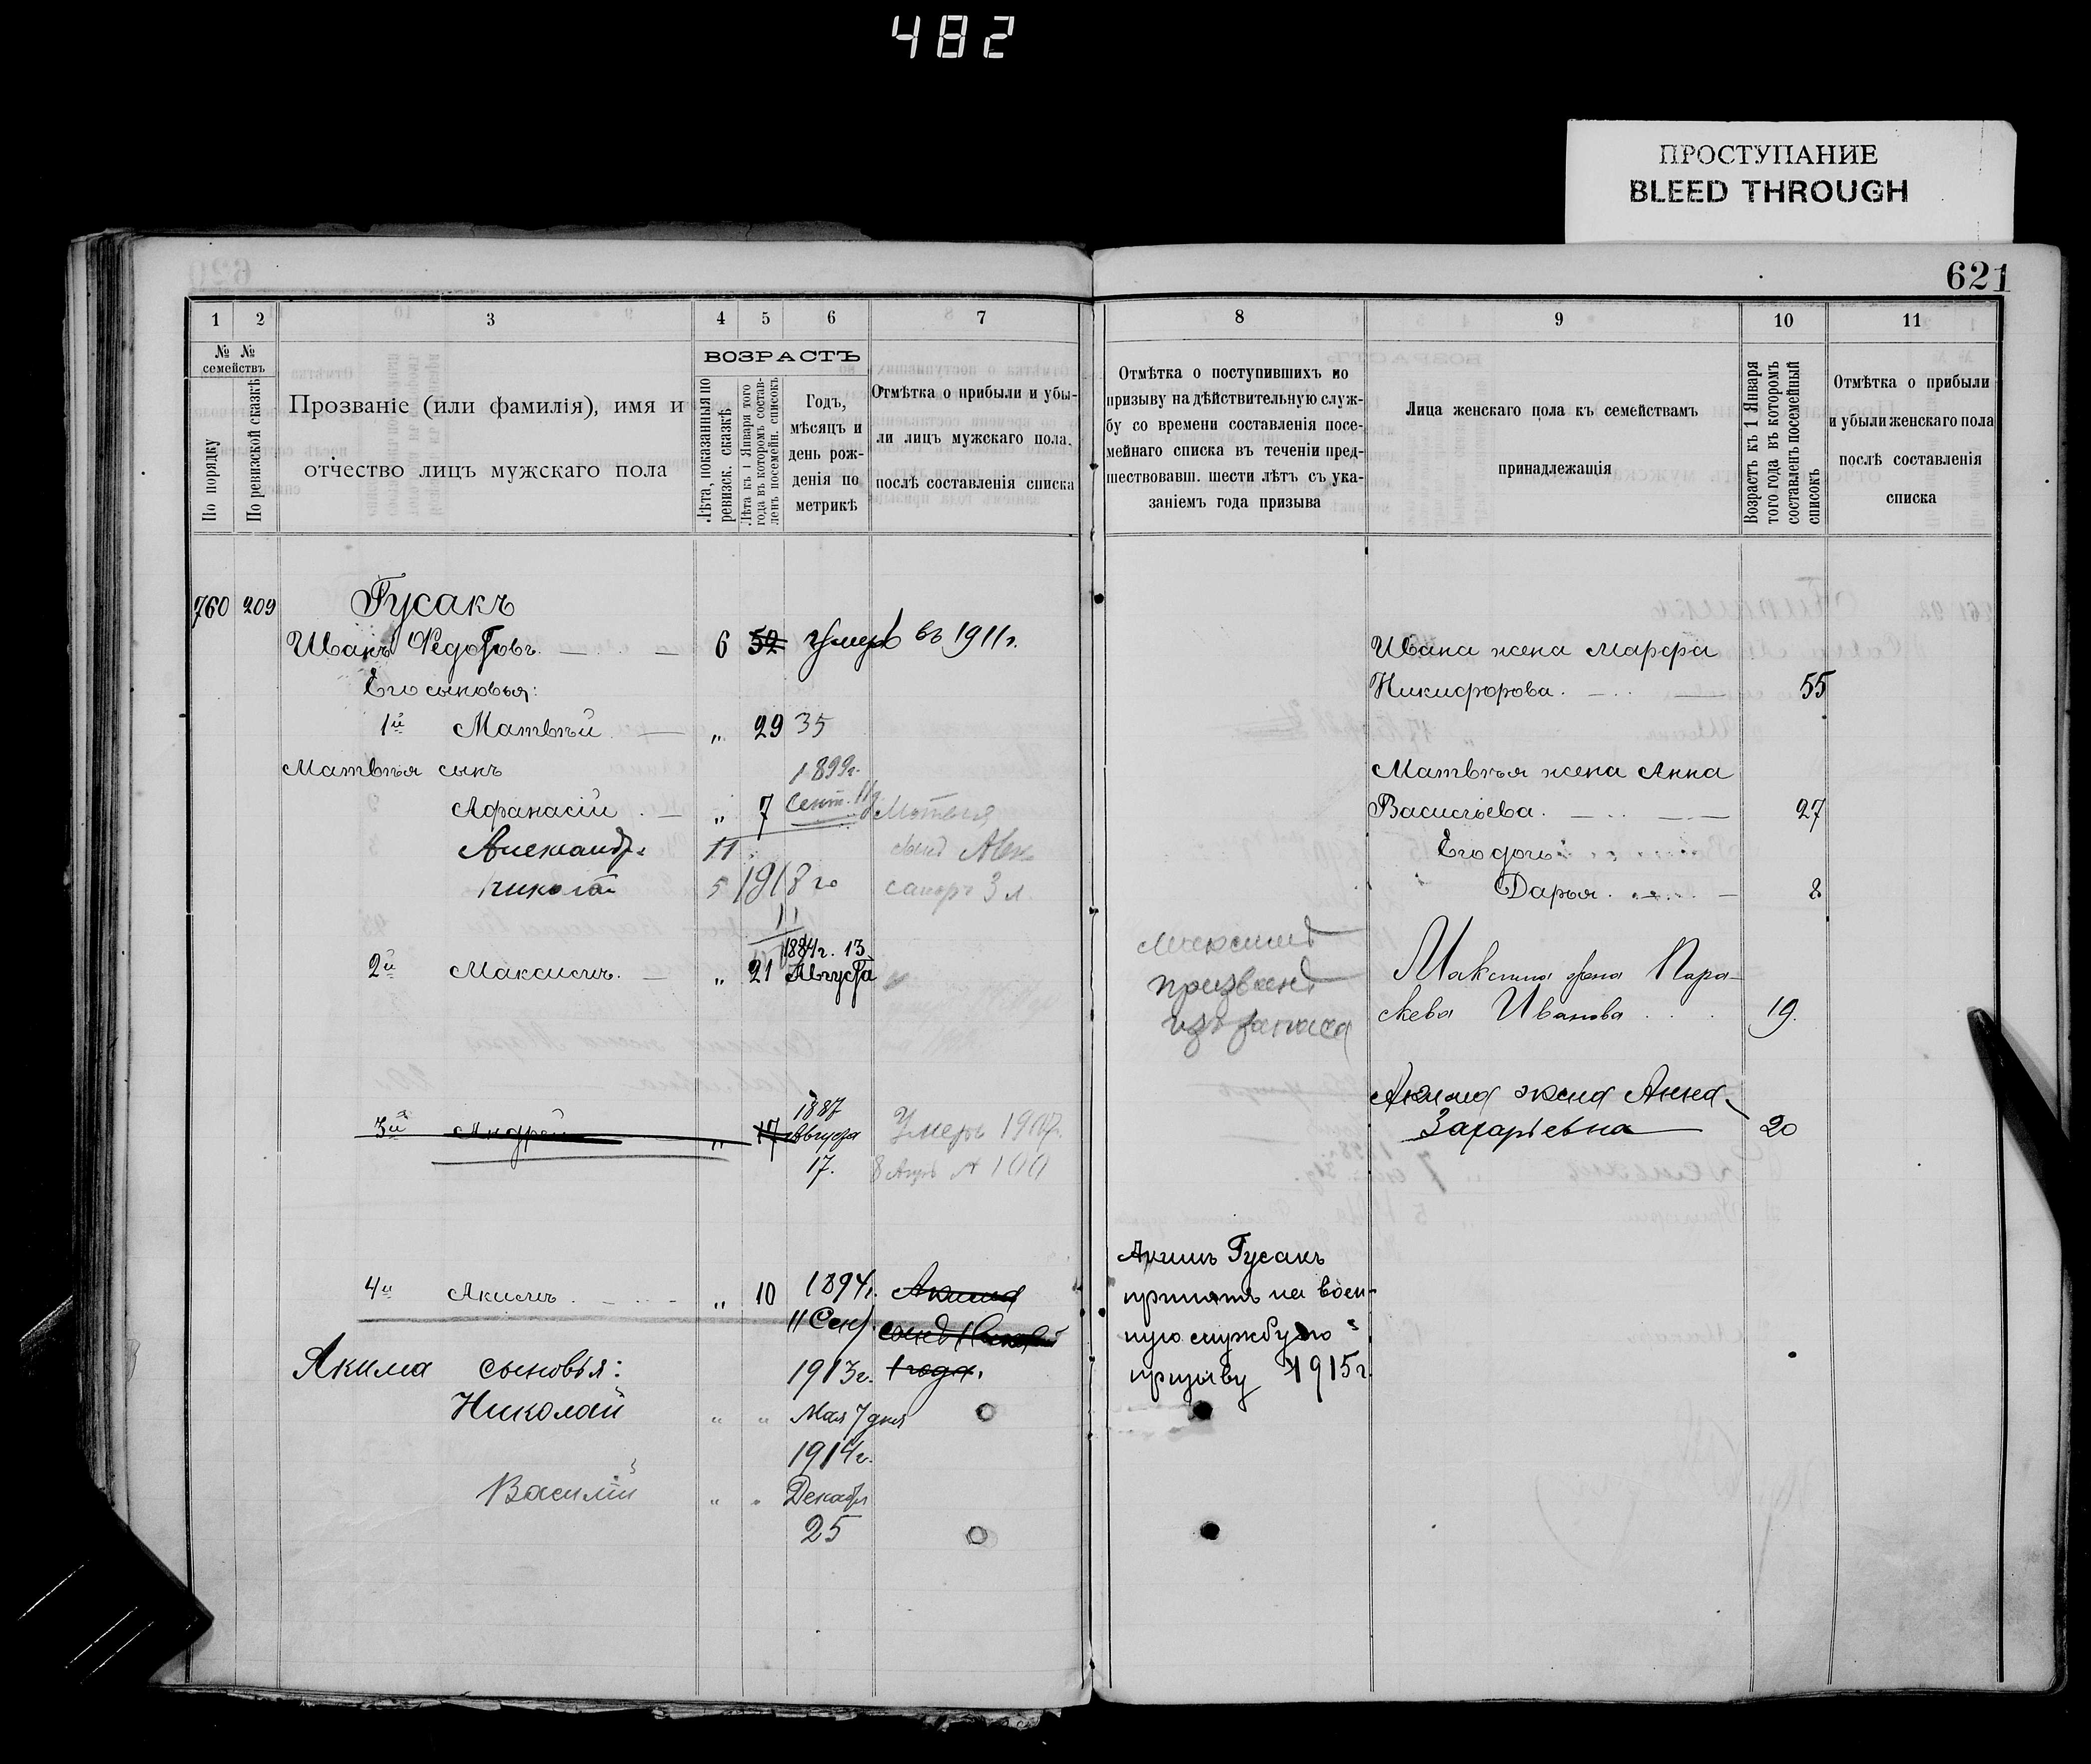 482
ПРОСТУПАНИЕ
BLEED THROUGH
621
1 2 3 4 5 6 7 8 9 10 11
№ № семействъ
По порядку
По ревизской сказкѣ
Прозваніе (или фамилія), имя и
отчество лицъ мужскаго пола
ВОЗРАСТЪ
Лѣта, показанныя по
ревизск. сказкѣ
Лѣта къ 1 Января того
года въ которомъ состав-
ленъ посемейн. списокъ
Годъ,
мѣсяцъ и
день рож-
денія по
метрикѣ
Отмѣтка о прибыли и убы-
ли лицъ мужскаго пола,
послѣ составленія списка
Отмѣтка о поступившихъ по
призыву на дѣйствительную служ-
бу со времени составленія посе-
мейнаго списка въ теченіи пред-
шествовавш. шести лѣтъ съ ука-
заніемъ года призыва
Лица женскаго пола къ семействамъ
принадлежащія
Возрастъ къ 1 Января
того года въ которомъ
составленъ посемейный
списокъ
Отмѣтка о прибыли
и убыли женскаго пола
послѣ составленія
списка
760 209 Гусакъ
Иванъ Федотовъ 6 52 умеръ въ 1911г.
Его сыновья:
1й Матвѣй " 29 35
Матвѣя сынъ 1899г.
Афанасій " 7 Сент. 11д. Матвея
Александръ 11 сынъ Алек
Николай 5 1913 го 3 л.
11
1884г. 13
2й Максимъ " 21 Августа
1887
3й Андрей " 17 Августа Умеръ 1907.
17. 8 Апр
4й Акимъ " 10 1894г. Акима
11 Сен. сынъ Николай
Акима сыновья: 1913г. 1 года.
Николай " " Мая 7 дня
1914г.
Василій " " Декабр
25
Максимъ
призванъ
изъ запаса
Акимъ Гусакъ
принятъ на воен-
ную службу по
призыву 1915г.
Ивана жена Марфа
Никифорова 55
Матвѣя жена Анна
Васильева 27
Его дочь
Дарья 8
Максима жена Пара-
скева Иванова 19.
Акима жена Анна
Захарьевна 20